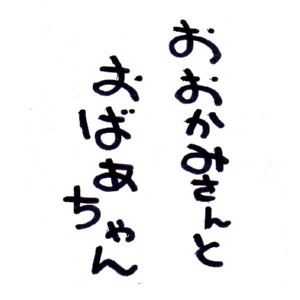 おおかみさんと
おばあちゃん